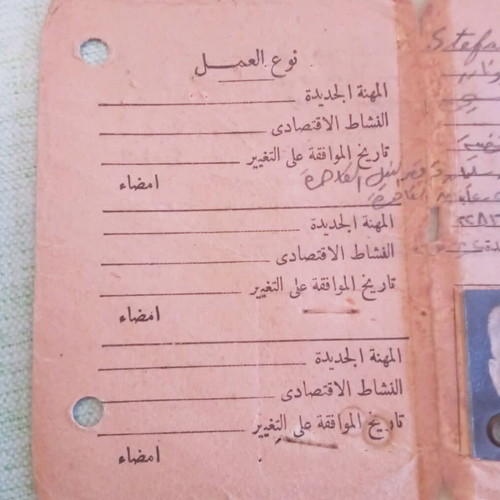 نوع العمل
المهنة الجديدة
النشاط الاقتصادى
تاريخ الموافقة على التغيير
امضاء
المهنة الجديدة
النشاط الاقتصادى
تاريخ الموافقة على التغيير
امضاء
المهنة الجديدة
النشاط الاقتصادى
تاريخ الموافقة على التغيير
امضاء
القاهرة